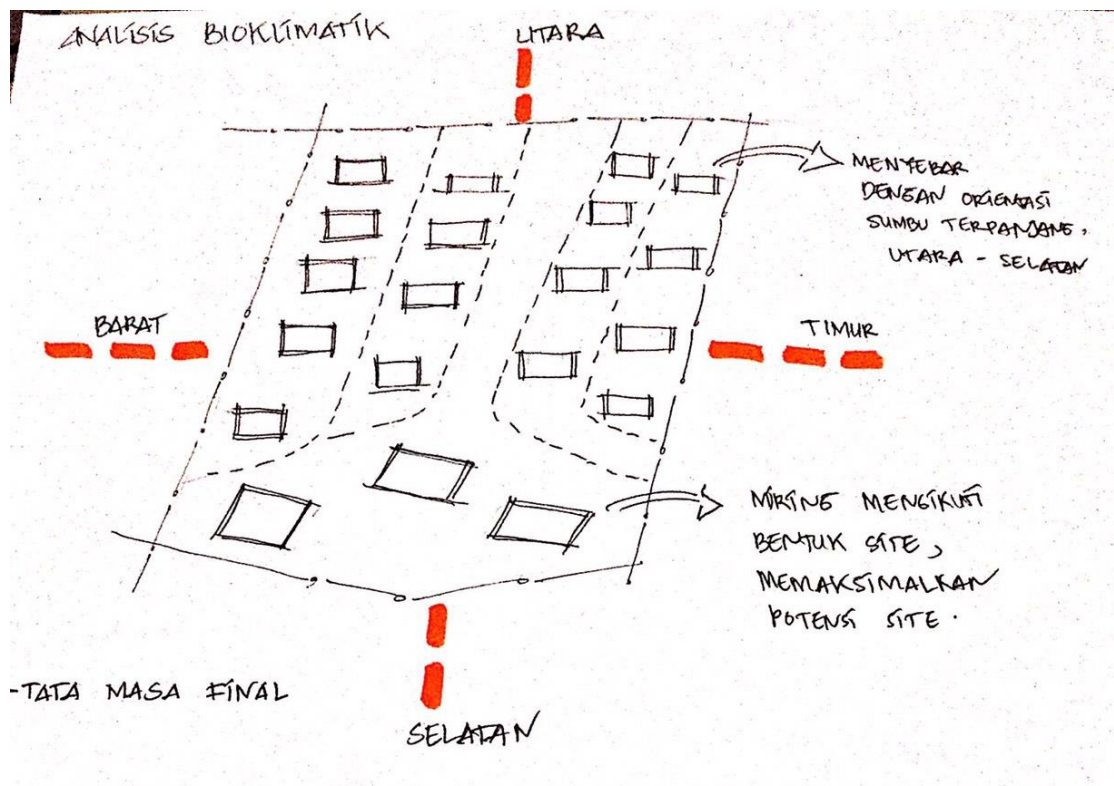 ANALISIS BIOKLIMATIK
UTARA
MENYEBAR
DENGAN ORIENTASI
SUMBU TERPANJANG,
UTARA - SELATAN
BARAT
TIMUR
MIRING MENGIKUTI
BENTUK SITE,
MEMAKSIMALKAN
POTENSI SITE.
-TATA MASA FINAL
SELATAN